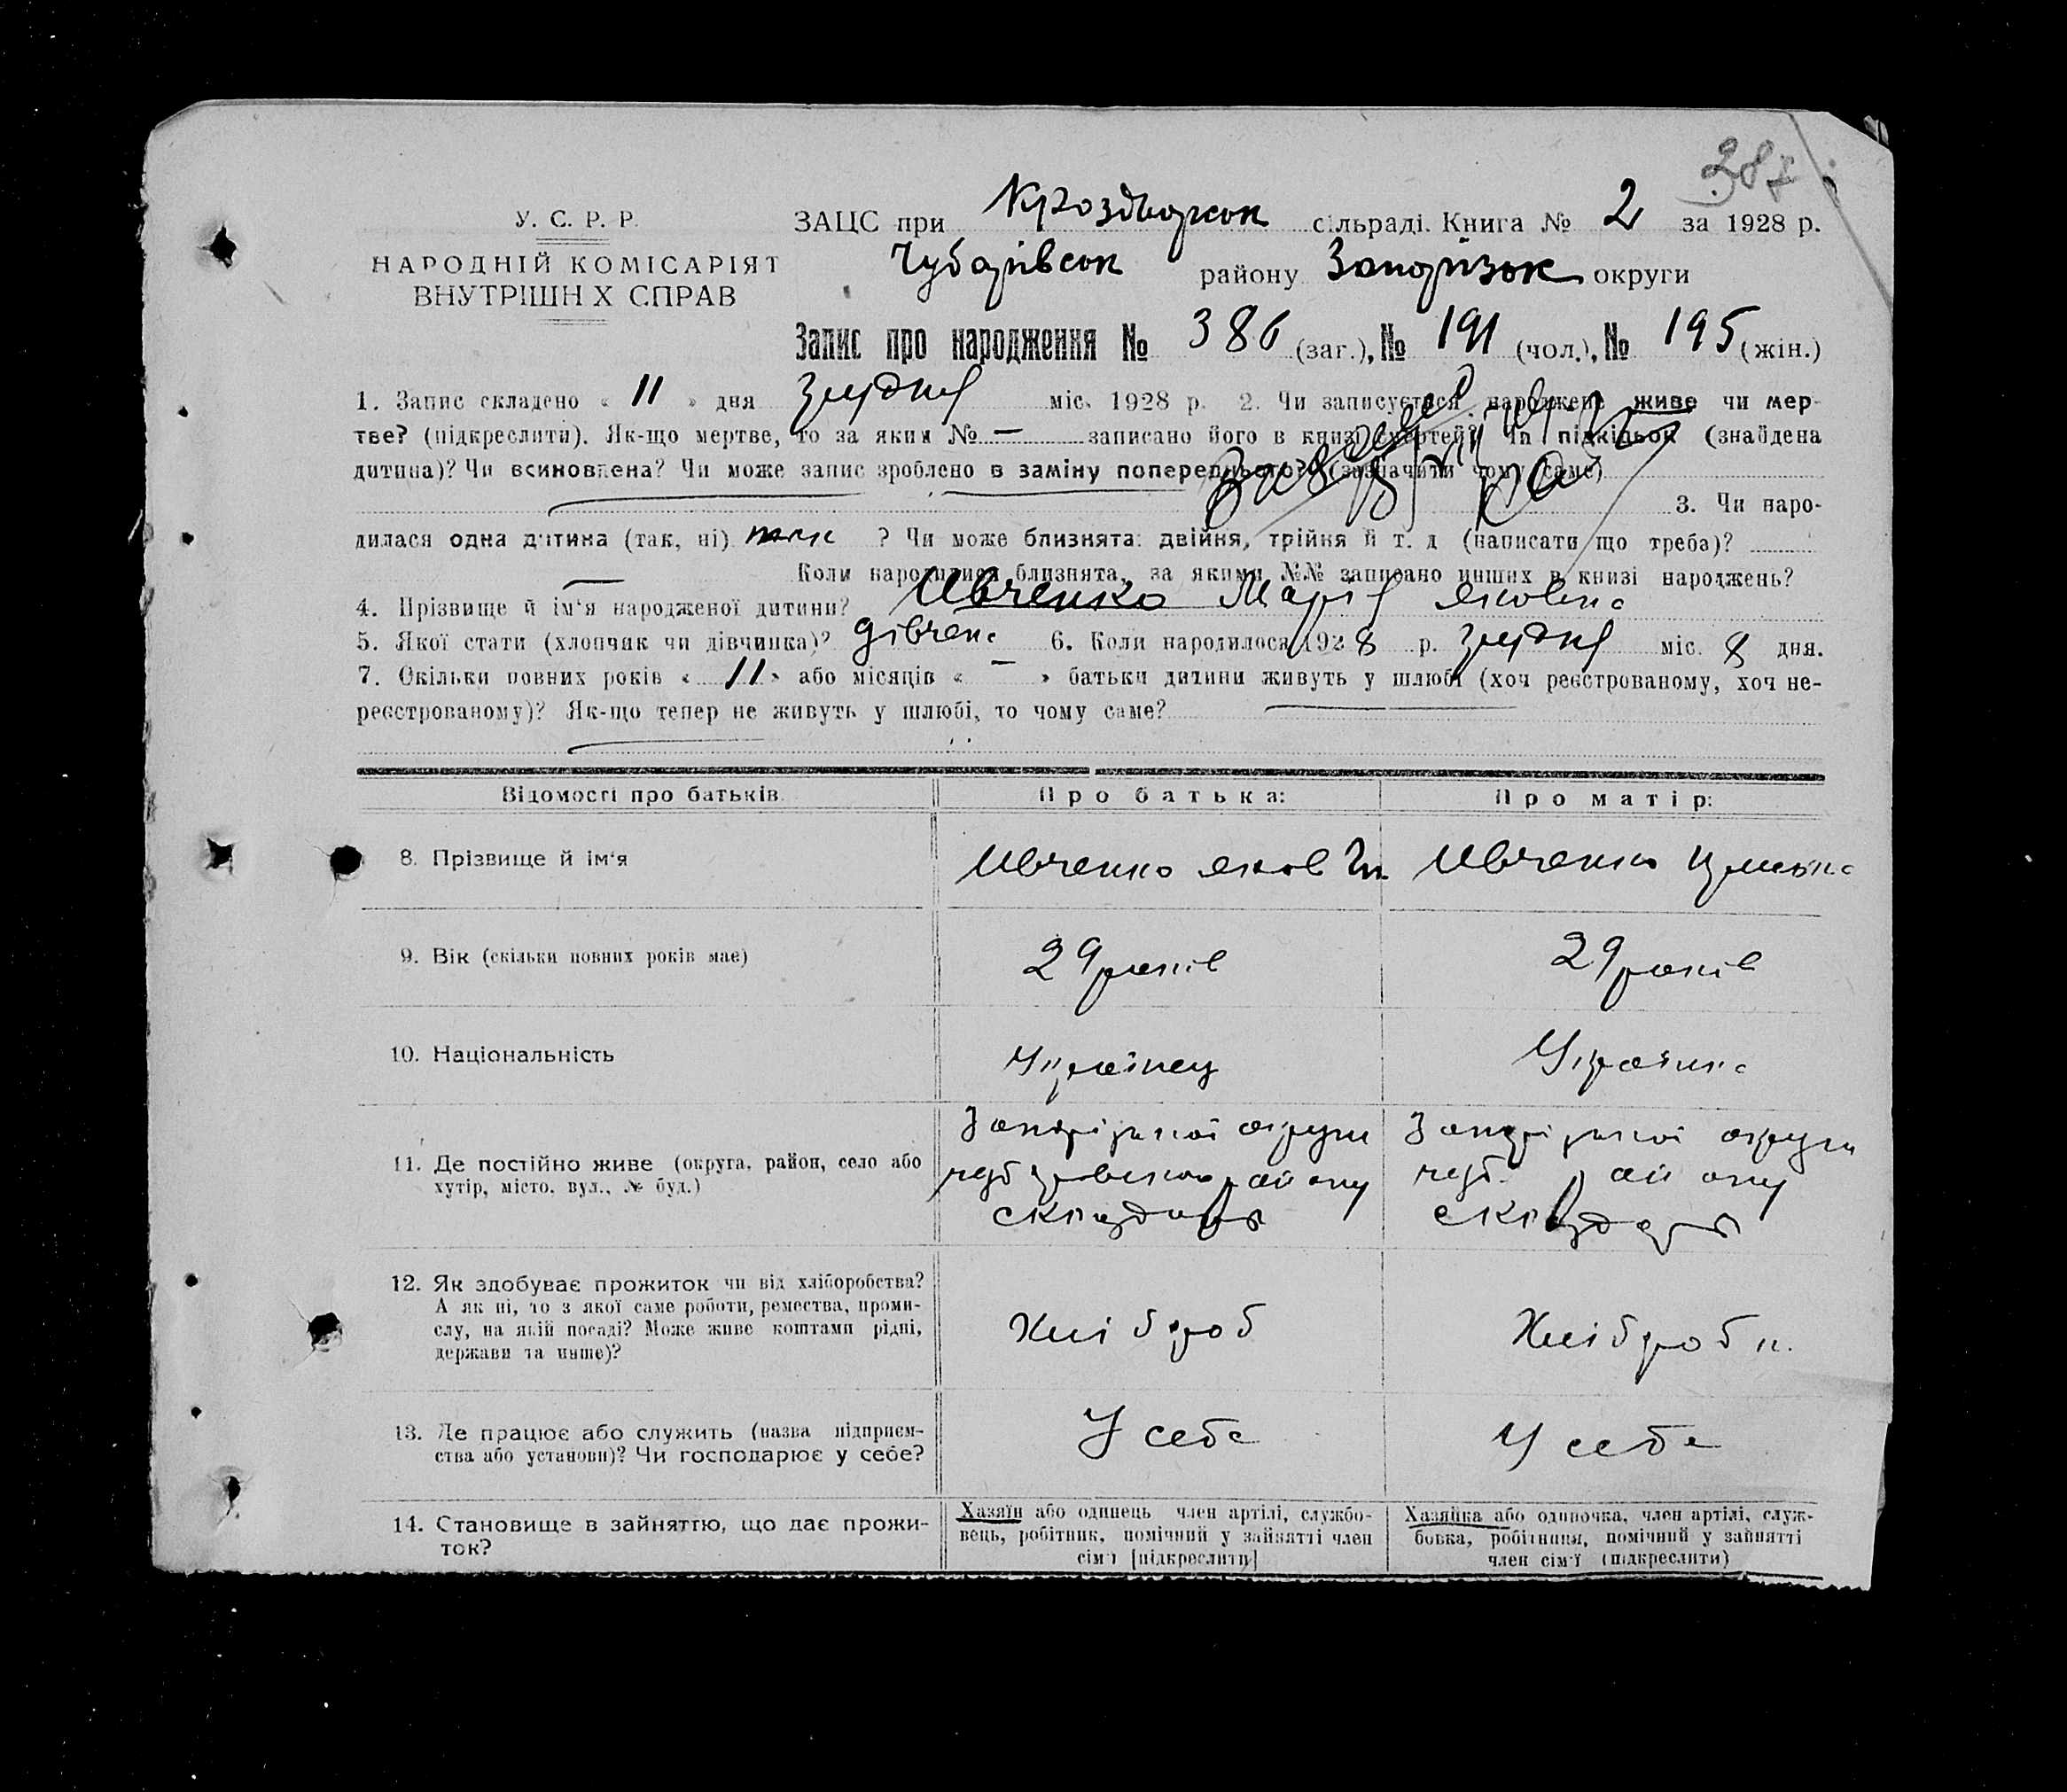 287
У. С. Р. Р.
НАРОДНІЙ КОМІСАРІЯТ
ВНУТРІШН Х СПРАВ
ЗАЦС при сільраді. Книга № 2 за 1928 р.
Чубарівськ району Запорізьк округи
Запис про народження № 386 (заг.), № 191 (чол.), № 195 (жін.)
1. Запис складено « 11 » дня грудня міс. 1928 р. 2. Чи записується народжене живе чи мер-
тве? (підкреслити). Як-що мертве, то за яким № — записано його в книзі смертей? Чи підкідьок (знайдена
дитина)? Чи всиновлена? Чи може запис зроблено в заміну попереднього? (зазначити чому саме)
3. Чи наро-
дилася одна дитина (так, ні) так ? Чи може близнята: двійня, трійня й т. д (написати що треба)?
— Коли народилися близнята, за якими №№ записано инших в книзі народжень?
4. Прізвище й ім'я народженої дитини? Ивченко Марія Яковена
5. Якої стати (хлопчик чи дівчинка)? дівчена 6. Коли народилося 1928 р. грудня міс. 8 дня.
7. Скільки повних років « 11 » або місяців « — » батьки дитини живуть у шлюбі (хоч реєстрованому, хоч не-
реєстрованому)? Як-що тепер не живуть у шлюбі, то чому саме?
Відомості про батьків Про батька: Про матір:
8. Прізвище й ім'я Ивченко Яков Ивченко
9. Вік (скільки повних років має) 29 років 29 років
10. Національність Українец Українка
11. Де постійно живе (округа, район, село або
хутір, місто, вул., № буд.)
Запорізької округи Запорізької округи
чубарівського району чуб. району
12. Як здобуває прожиток чи від хліборобства?
А як ні, то з якої саме роботи, ремества, проми-
слу, на якій посаді? Може живе коштами рідні,
держави та инше)?
Хлібороб Хліброб к.
13. Де працює або служить (назва підприєм-
ства або установи)? Чи господарює у себе?
У себе У себе
14. Становище в зайняттю, що дає прожи-
ток?
Хазяїн або одинець член артілі, службо-
вець, робітник, помічний у зайнятті член
сім'ї [підкреслити]
Хазяйка або одиночка, член артілі, служ-
бовка, робітниця, помічний у зайнятті
член сім'ї (підкреслити)